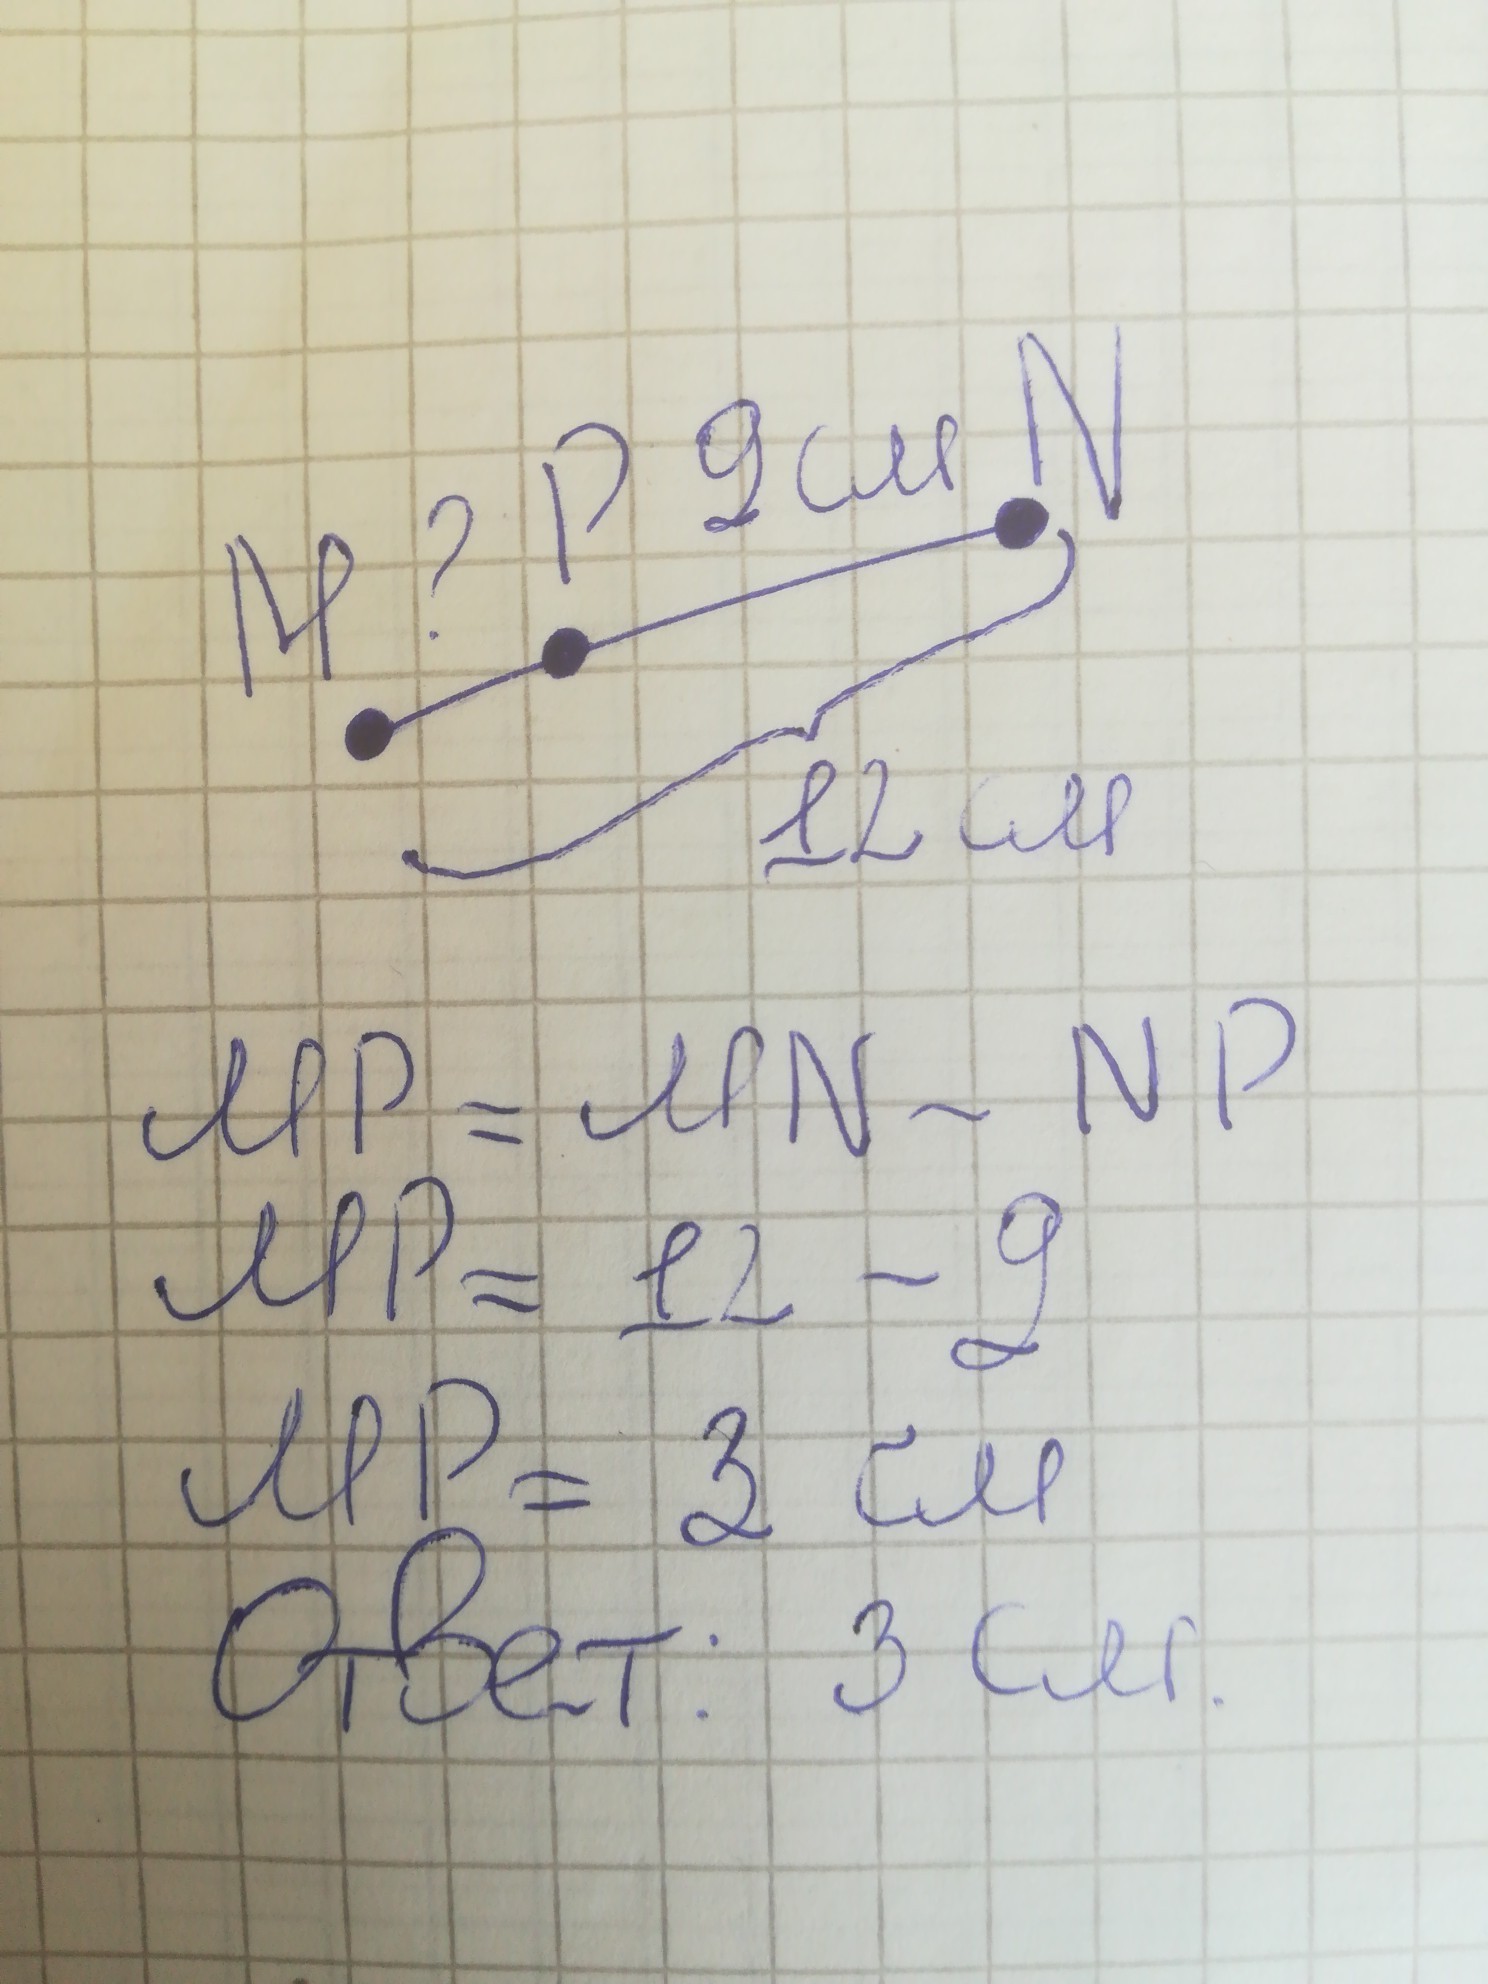 M ? P 9 см N
12 см
MP = MN - NP
MP = 12 - 9
MP = 3 см
Ответ: 3 см.